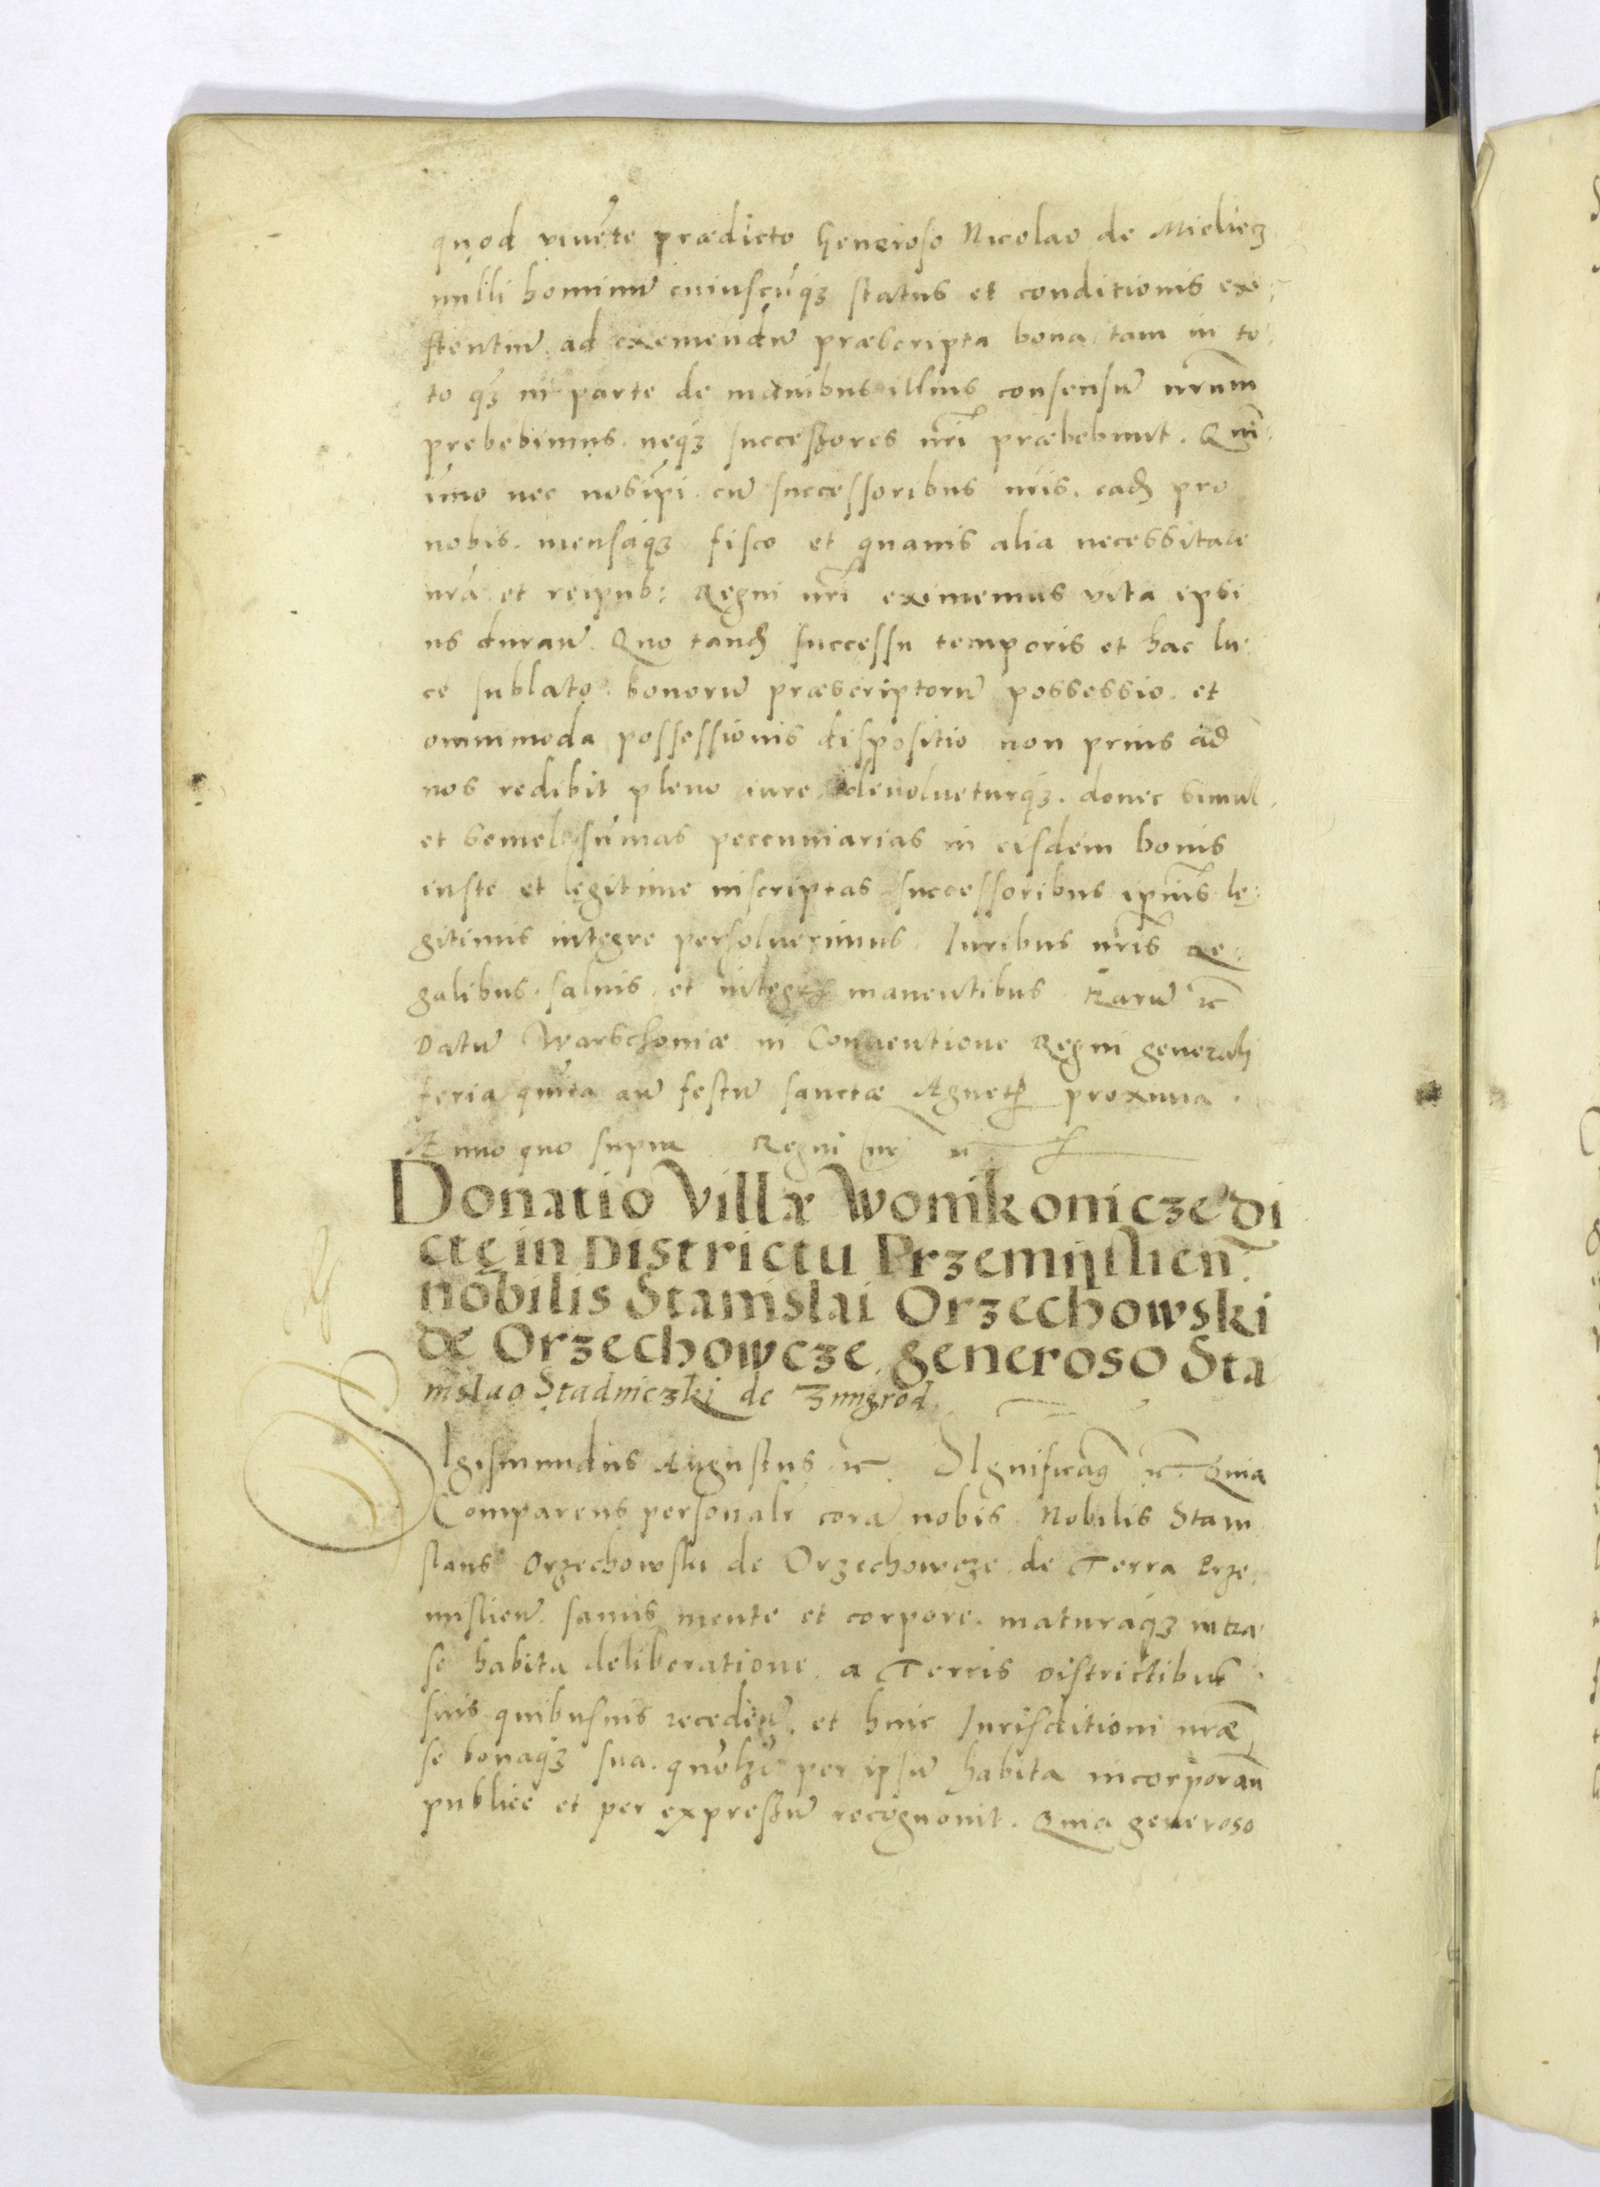 quod viuēte prædicto Generoso Nicolao de Mieliecz
nulli hominū cuiuscūq3 status et conditionis exi:
stentiū ad eximendū præscripta bona tam in to:
to q3 in parte de manibus illius consensū nr̄um
prebebimus. neq3 successores nr̄i præbebunt. Quin
imo nec nosip̄i cū successoribus nr̄is. eadē pro
nobis. mensaq3 fisco et quauis alia necessitate
nr̄a et reipub: Regni nr̄i eximemus vita ipsi
us durāte. Quo tandē successu temporis et hac lu:
ce sublato. bonorū præscriptorū possessio. et
omnimoda possessionis dispositio non prius ad
nos redibit pleno iure deuolueturq3. donec simul
et semel sūmas peccuniarias in eisdem bonis
iuste et legitime inscriptas successoribus ip̄ius le:
gitimis integre persoluerimus. Iuribus nr̄is Re:
galibus. saluis. et integris manentibus. Harū zc̄
Datū Warschouiæ in Conuentione Regni generali
feria quīta an̄ festū sanctæ Agnetis proxima.
Anno quo supra Regni nr̄i zc̄
Donatio Villæ Woinikonicze di
ctę in Districtu Przemislien̄.
nobilis Stanislai Orzechowski
de Orzechowcze generoso Sta
nislao Stadniczki de Zmigrod.
SIgismundus Augustus zc̄. SIgnificam9 zc̄ Quia
Comparens personalr̄ corā nobis. Nobilis Stani
slaus Orzechowski de Orzechowcze de Terra Prze:
mislien̄. sanus mente et corpore. maturaq3 intra
se habita deliberatione. a Terris districtibus
suis quibusuis recedēn̄. et huic Iurisditioni nr̄æ
se bonaq3 sua. per ipsū habita incorporan̄
publice et per expressū recognouit. Quia generoso